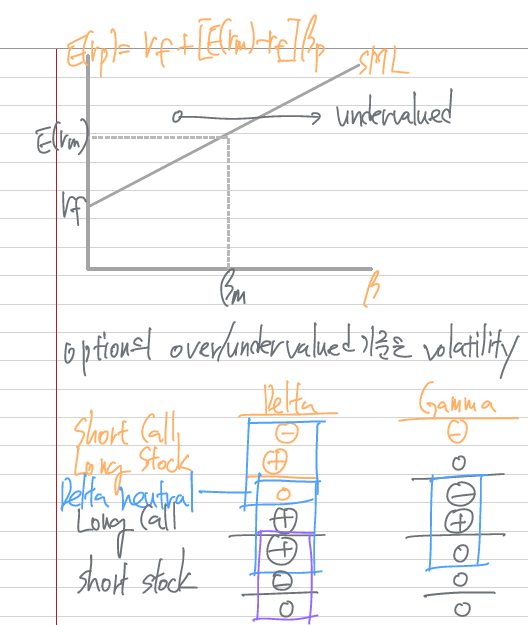 E(rp) = rf + [E(rm) - rf] βp
SML
undervalued
E(rm)
rf
βm
β
option의 over/undervalued 기준은 volatility
Delta Gamma
Short Call ⊖ ⊖
Long Stock ⊕ 0
Delta neutral 0 ⊖
Long Call ⊕ ⊕
⊕ 0
short stock ⊖ 0
0 0